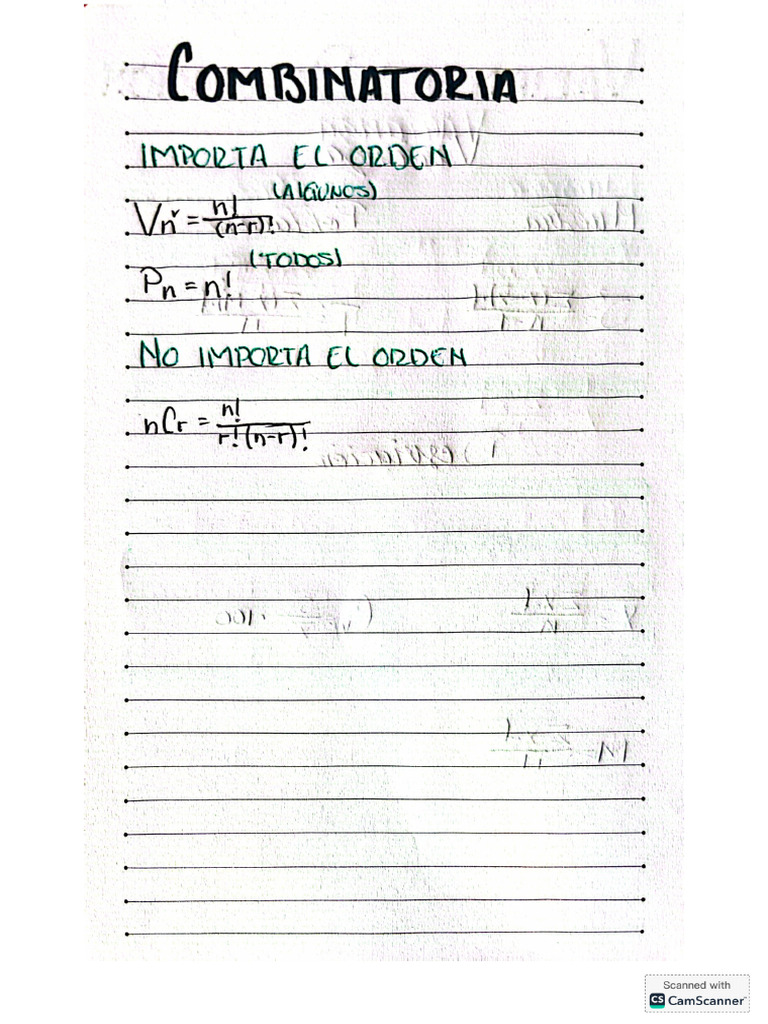 COMBINATORIA
IMPORTA EL ORDEN
(ALGUNOS)
Vnʳ = n!/(n-r)!
(TODOS)
Pn = n!
NO IMPORTA EL ORDEN
nCr = n!/r!(n-r)!
Scanned with
CS CamScanner